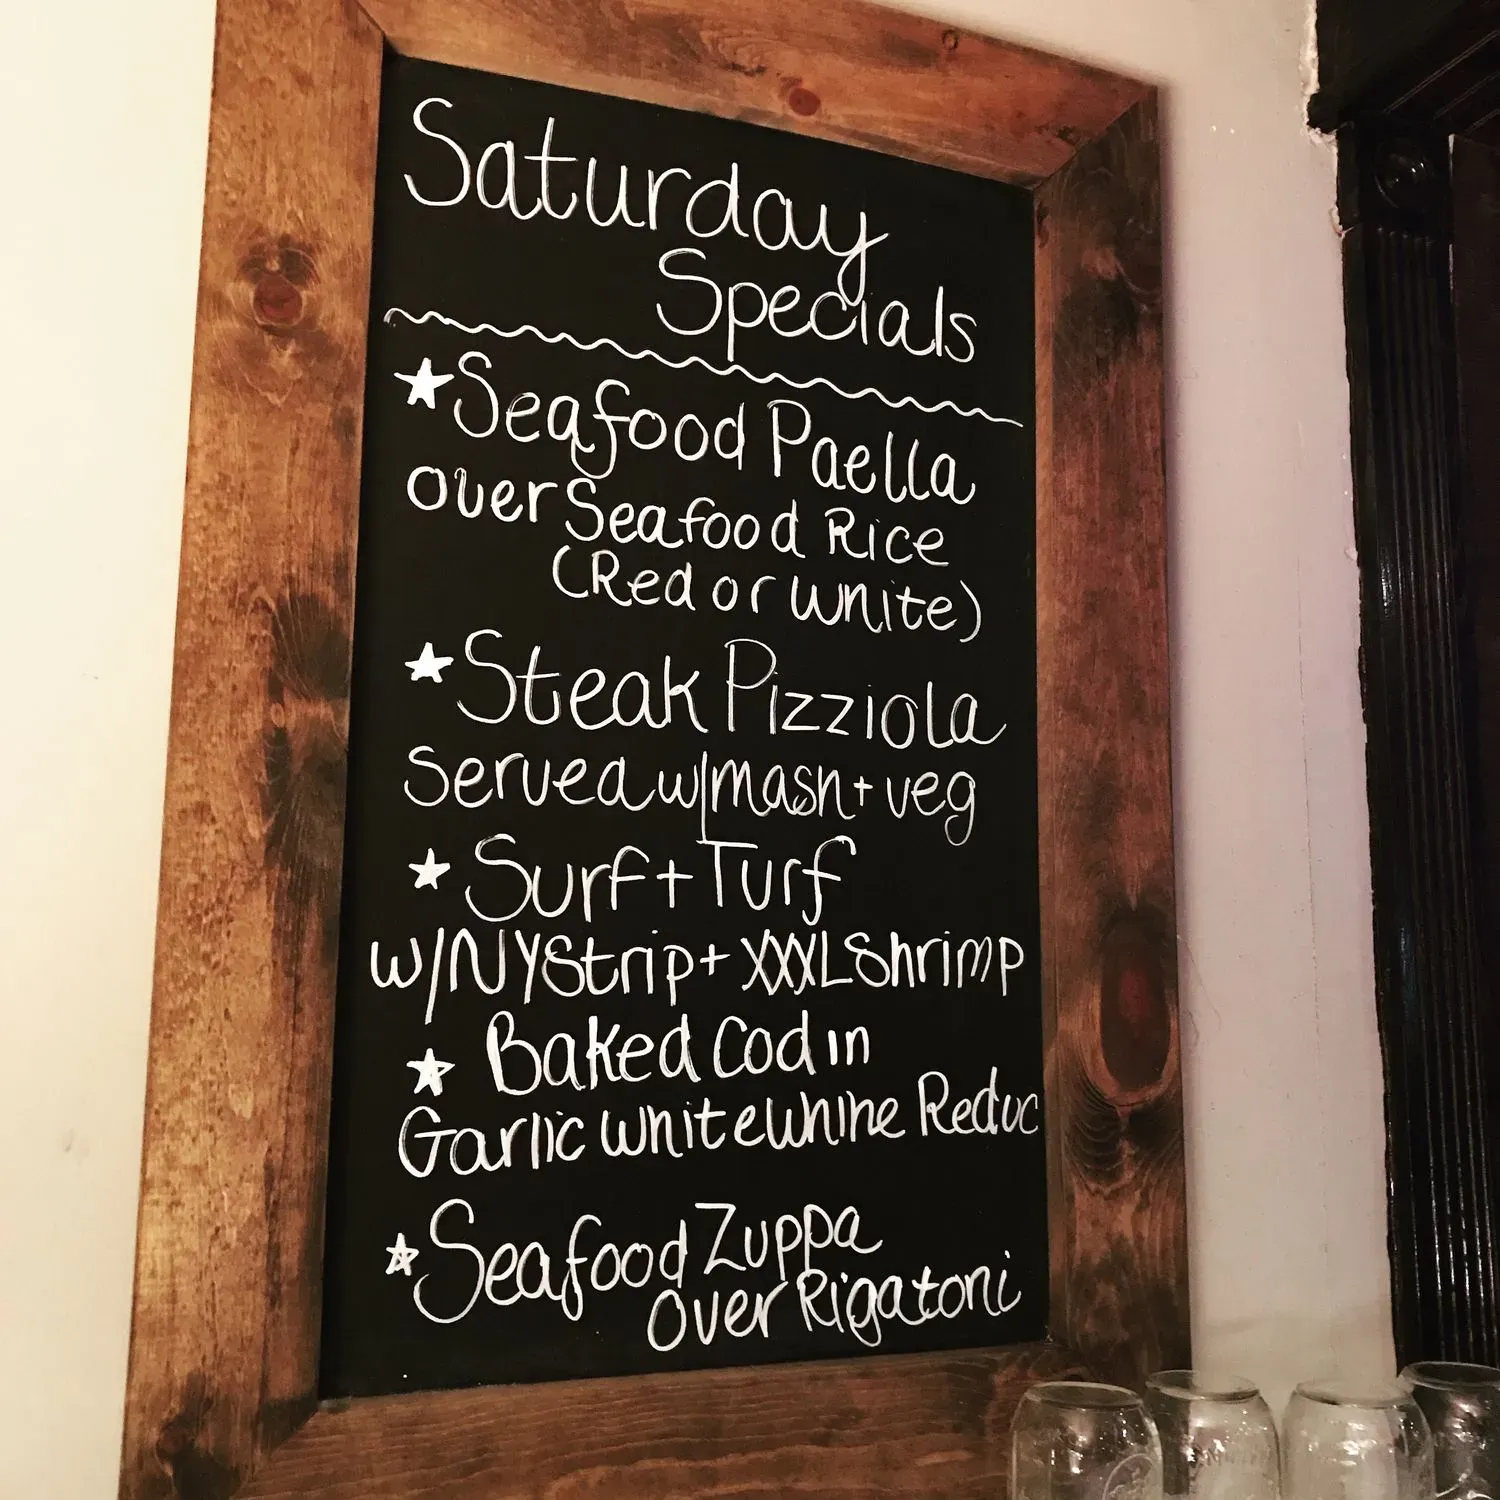 Saturday
Specials
★Seafood Paella
over Seafood Rice
(Red or White)
★Steak Pizziola
Served w/mash + veg
★ Surf + Turf
w/ NY Strip + XXXL Shrimp
★ Baked Cod in
Garlic White Whine Reduc
★Seafood Zuppa
over Rigatoni